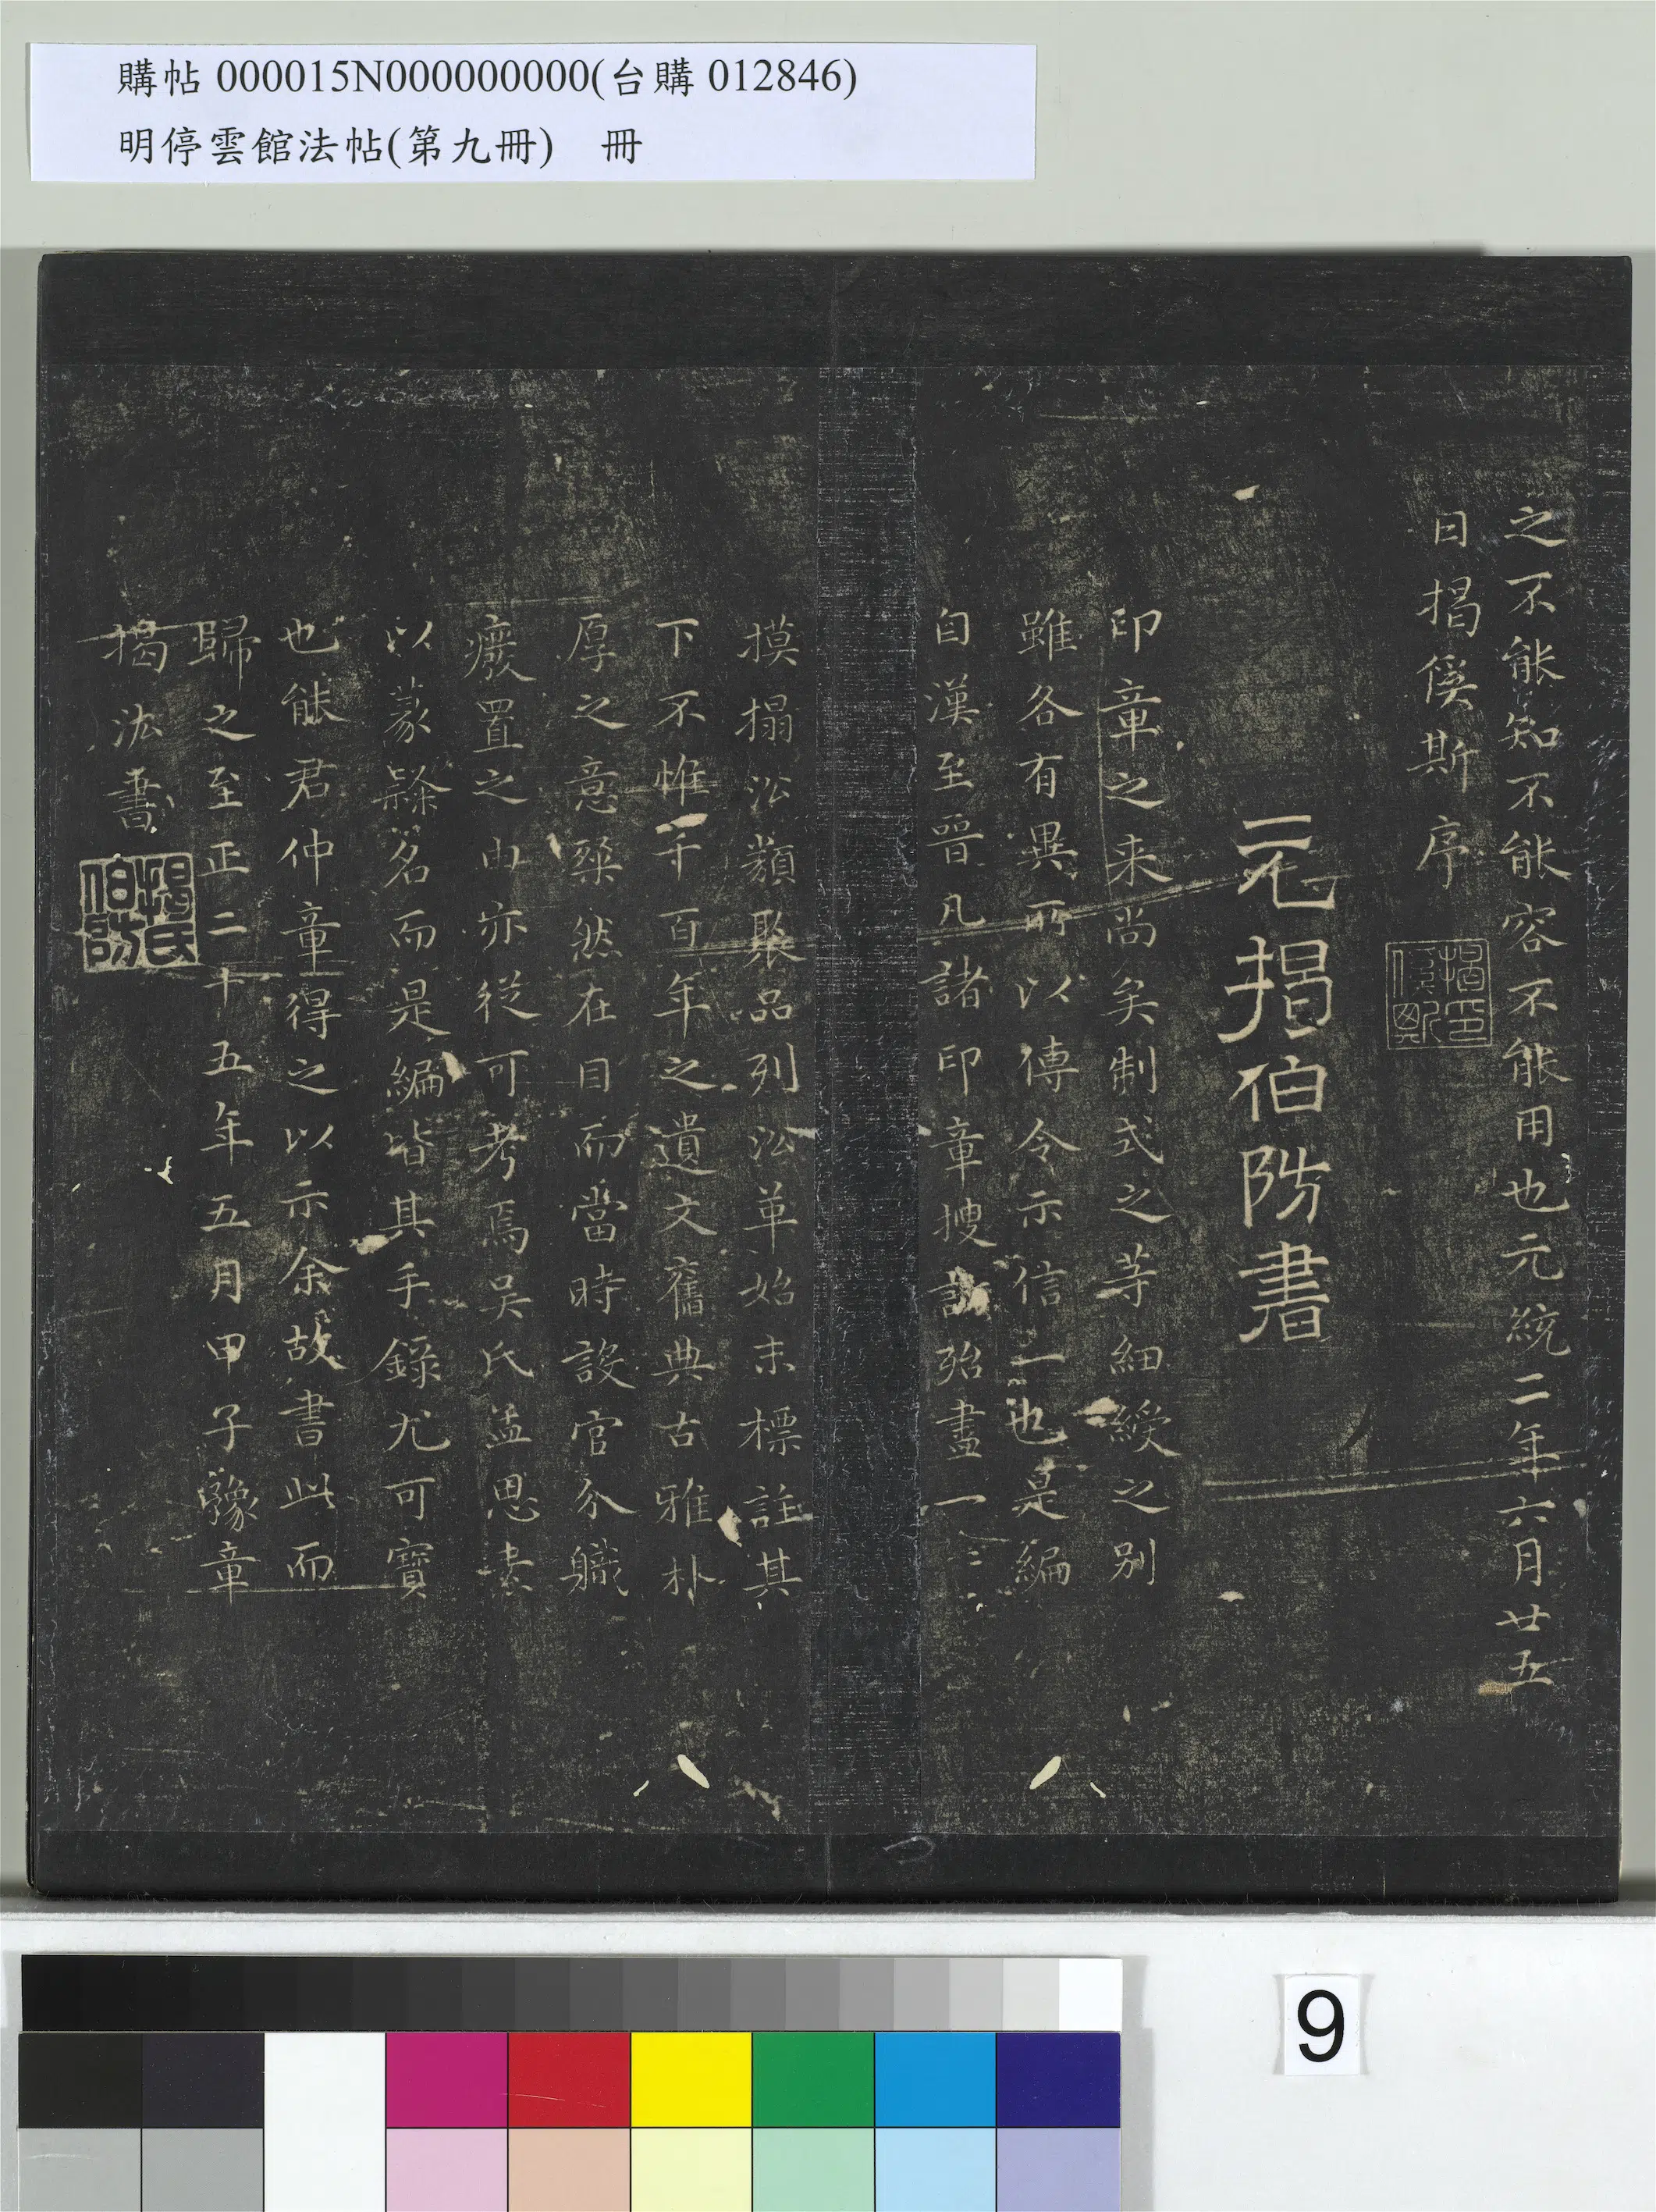 購帖 000015N000000000(台購 012846)
明停雲館法帖(第九冊)　冊
之不能知不能容不能用也元統二年六月廿五
日揭傒斯序
元揭伯防書
印章之来尚矣制式之等細綬之别
雖各有異所以傳令示信一也是編
自漢至晉凡諸印章搜訪殆盡一二
摸搨㳒類聚品列㳒革始末標註其
下不惟千百年之遺文舊典古雅朴
厚之意粲然在目而當時設官分職
癈置之由亦従可考焉吴氏孟思素
以篆隸名而是編皆其手錄尤可寶
也熊君仲章得之以示余故書此而
歸之至正二十五年五月甲子豫章
揭汯書
揭氏伯防
9